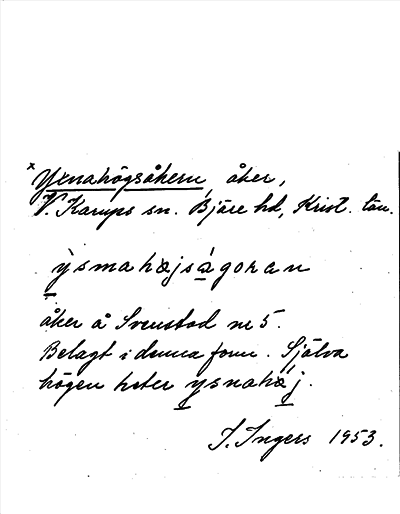 x Yxnahögsåkern, åker,
V. Karups sn. Bjäre hd, Krist. län.
ỳsmahæjságoran
åker å Svenstad nr 5.
Belagt i denna form. Själva
högen heter ysnahæj.
I. Ingers 1953.